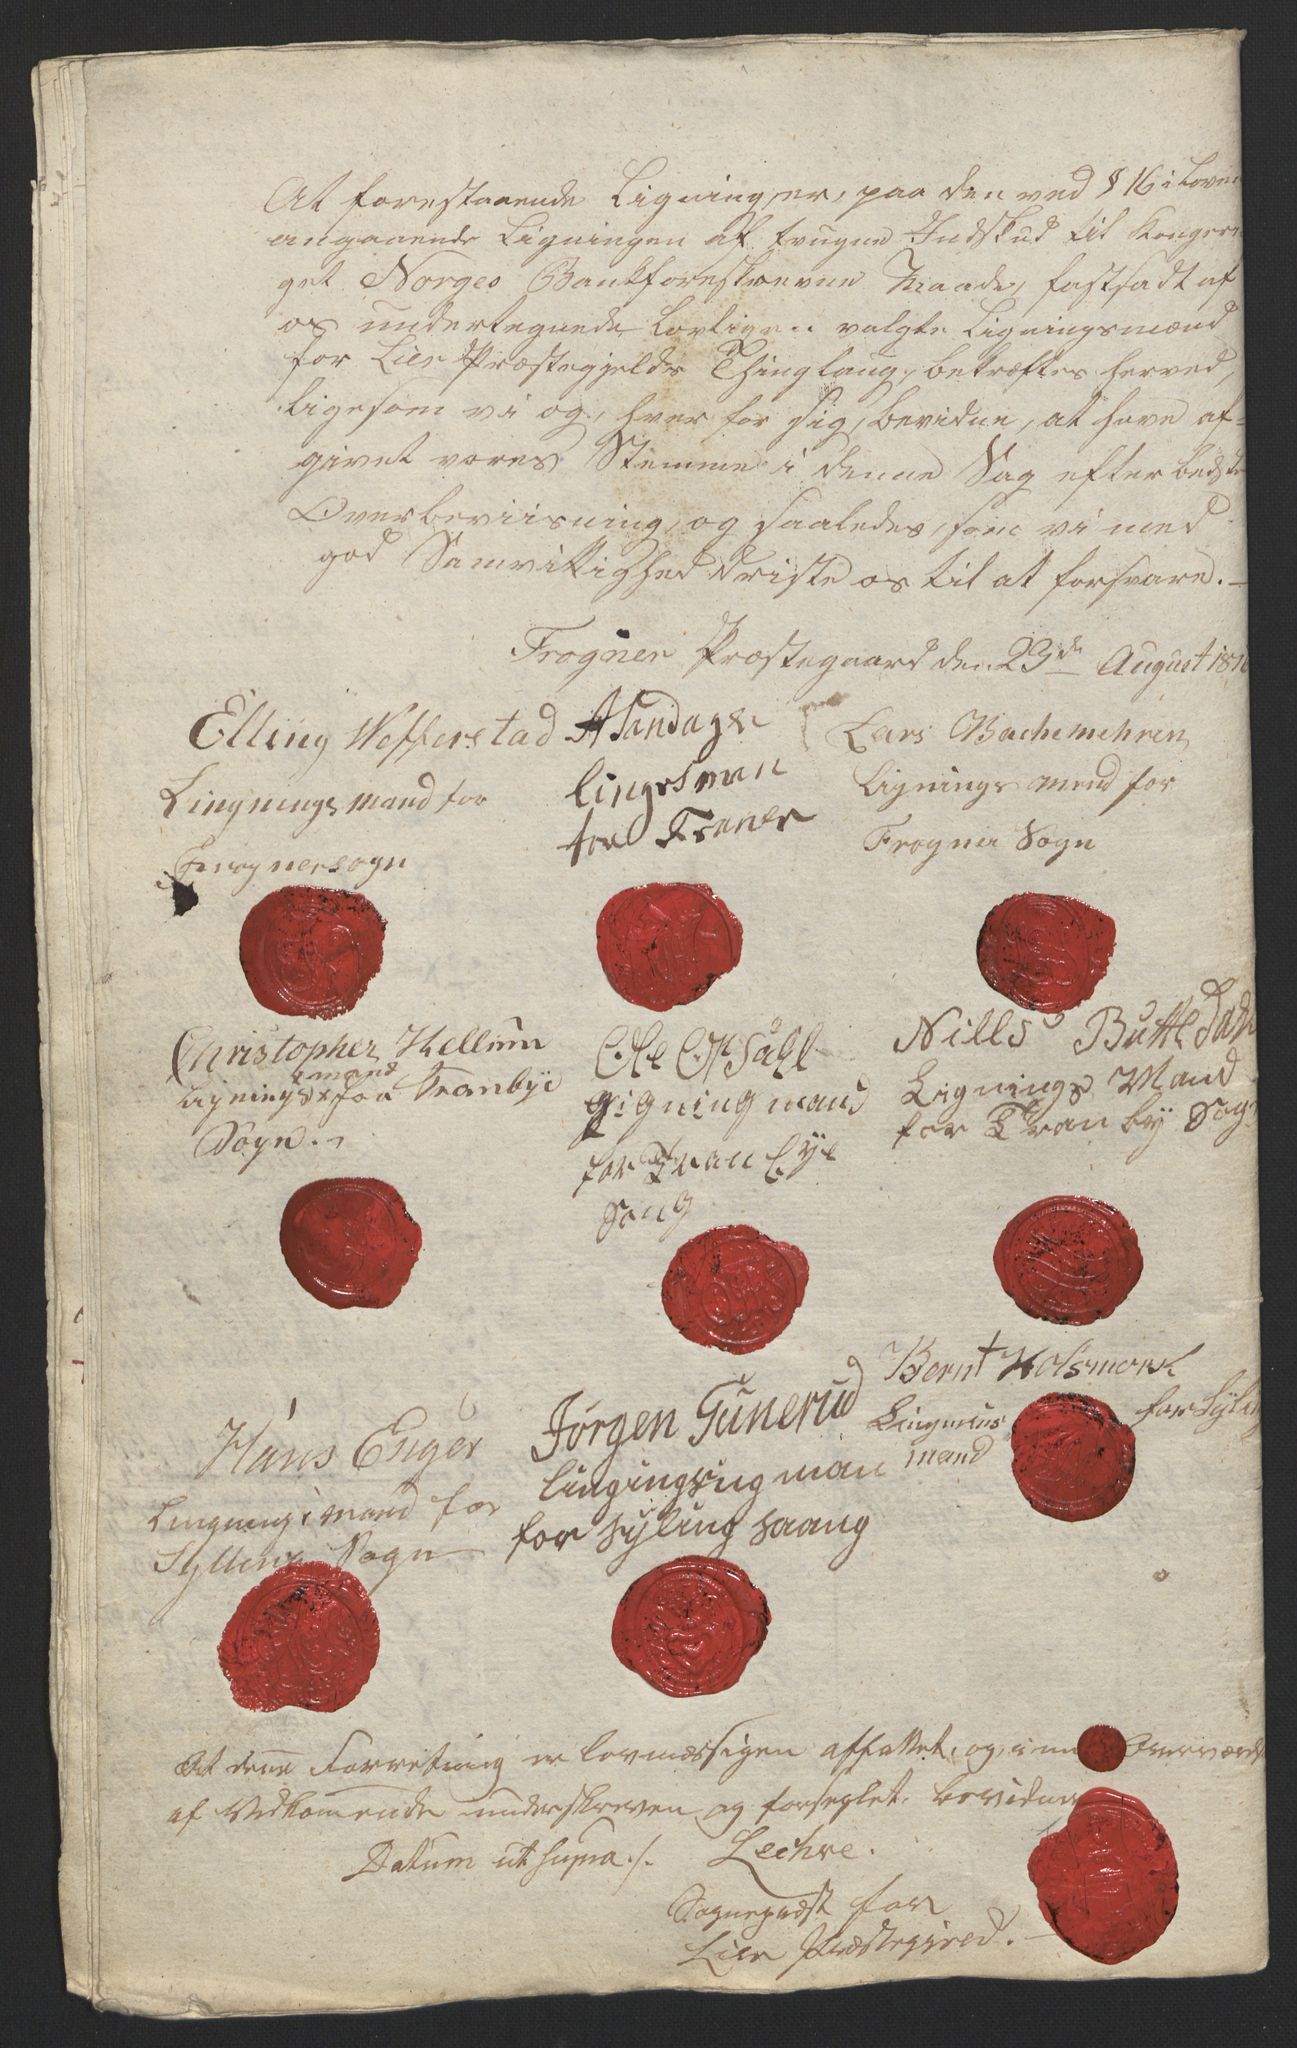 At forestaaende Ligning, er, paa den ved § 16 i Loven
angaaende Ligningen af tvugne Indskud til Kongeri-
get Norges Bank foreskrevne Maade, fastsadt af
os undertegnede lovligen valgte Ligningsmænd
for Lier Præstegjelds Thinglaug, betræftes herved,
ligesom vi og, hver for sig, bevidne, at have af-
givet vores Stemme i denne Sag efter bedste
Overbeviisning, og saaledes, som vi med
god Samvittighed driste os til at forsvare.
Frogner Præstegaard den 23de August 1816
Elling Wefferstad
Lingnings mand for
Frognersogn
A Sandager
lingesman
for Froner
Lars Bachemehren
Lignings mend for
Frogner Sogn
Christopher Kellum
Lignings mand foor Tranbye
Sogn.
Ole Opsahl
gigning mand
for Tranbye
Song
Nills Buttedahl
Lignings Mand
for Tranby Sogn
Hans Enger
Lingnings mand for
Sylling Sogn
Jørgen Gunerud
lingingsug man
for Syling Saang
Bernt Holsmork
Lingnins for Syling
mand
At denne Forretning er lovmæssigen affattet, og, i min Overværelse
af Vedkommende underskreven og forseglet, bevidnes
Datum ut supra ./. Lechve.
Sognepræst for
Lier Præstegield.